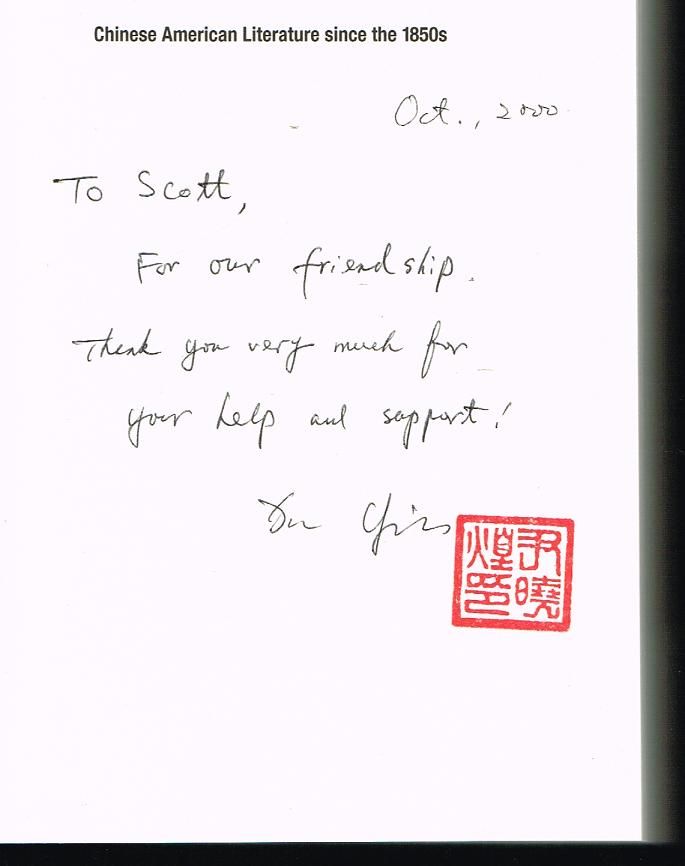 Chinese American Literature since the 1850s
Oct., 2000
To Scott,
For our friendship.
Thank you very much for
your help and support!
Yin
尹曉
煌印